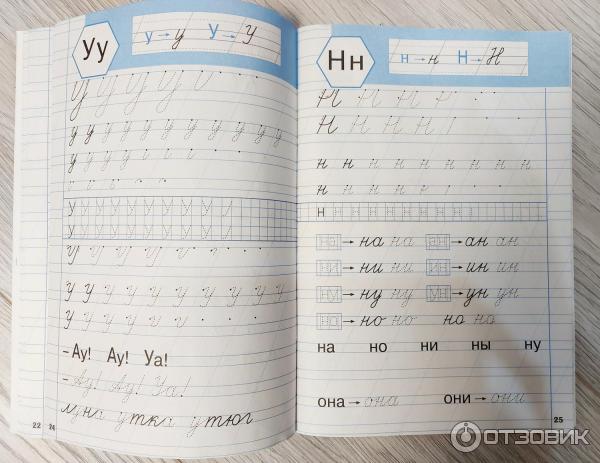 Уу
у → у У → У
У У У У У
у у у у у у у у у у у
у у у
У У У У У У У У
У У У У У
У У У У У У У У У У
У У У У У
– Ау! Ау! Уа!
– Ау! Ау! Уа!
луна утка утюг
22 24
Нн
н → н Н → Н
Н Н Н Н
Н Н Н Н
н н н н н н н н н
н н н н
н н н н н н н н н н н н
на → на на ан → ан ан
ни → ни ни ин → ин ин
ну → ну ну ун → ун ун
но → но но но но
на но ни ны ну
она → она они → они
25
ОТЗОВИК